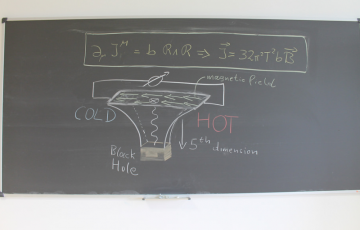 ∂ᵤ J^μ = b R∧R ⇒ J⃗ = 32π²T²b B⃗
magnetic field
COLD
HOT
5th dimension
Black
Hole